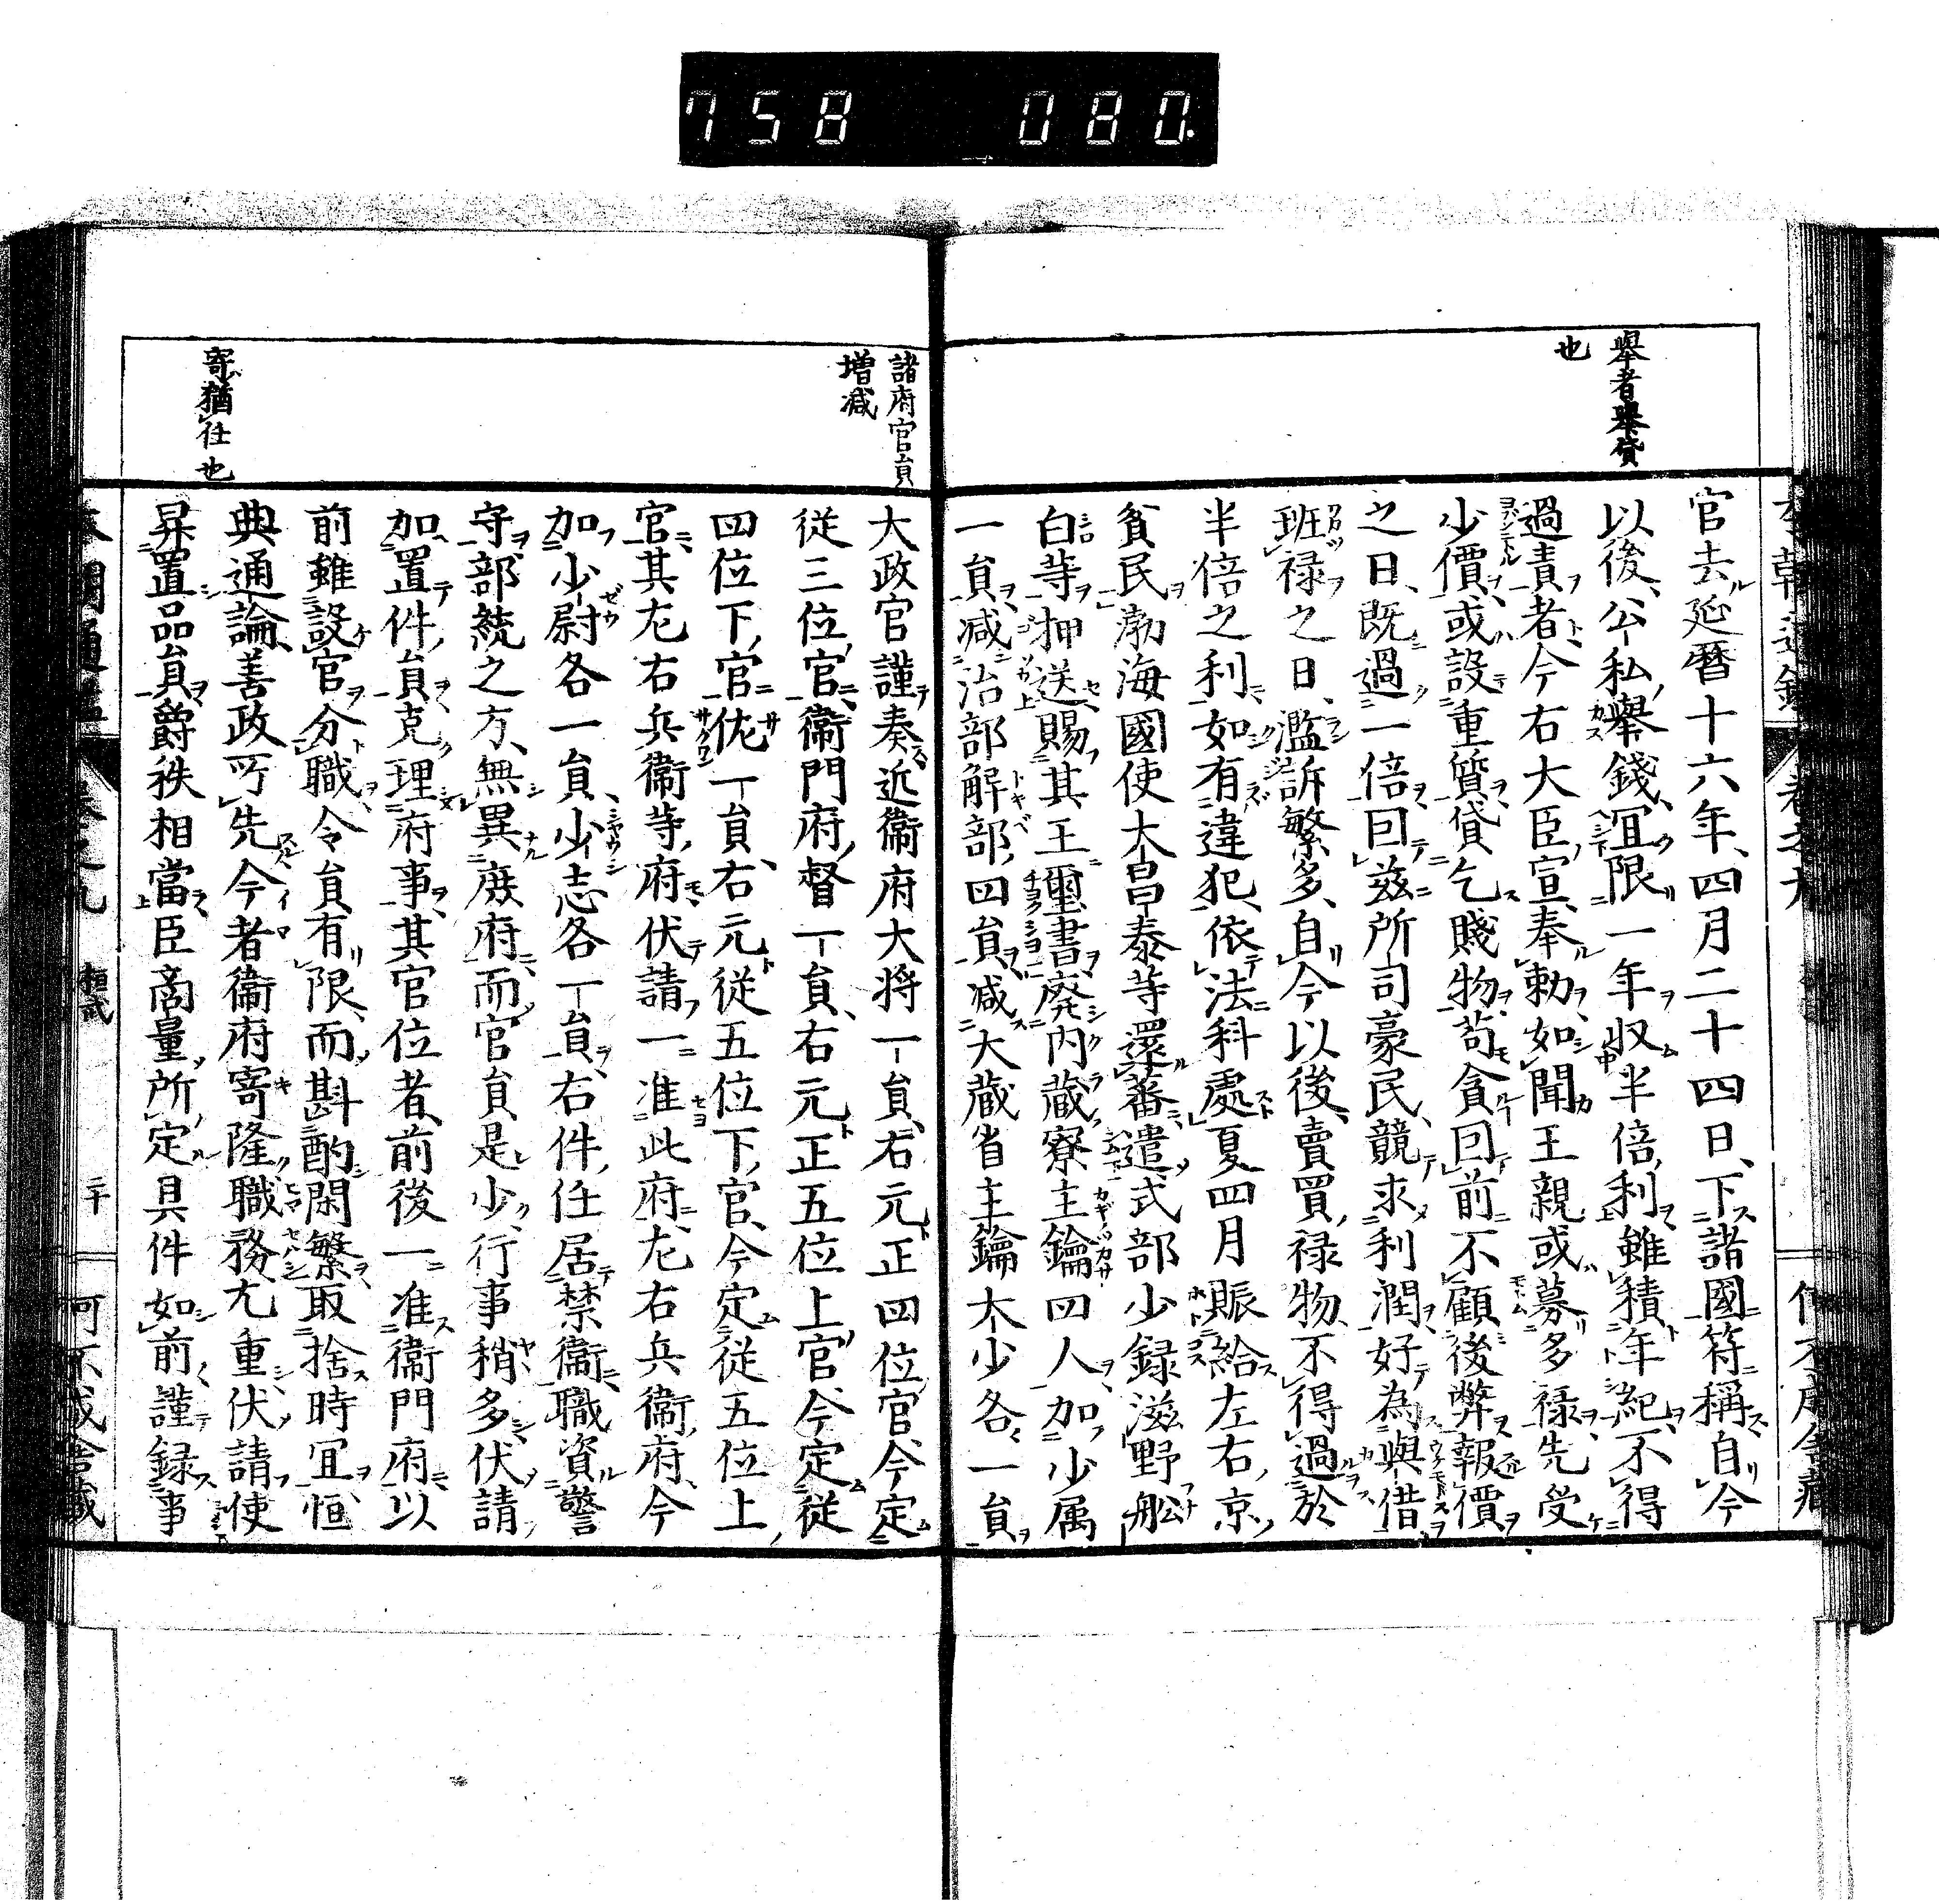 758 080.
擧者擧貸
也
官去延暦十六年四月二十四日下諸國符稱自今
以後公私擧錢宜限一年収半倍利雖積年紀不得
過責者今右大臣宣奉勅如聞王親或募多禄先受
少價或設重質貸乞賤物苟貪回前不顧後弊報價
之日既過一倍回兹所司豪民競求利潤好為與借
班禄之日濫訴繁多自今以後賣買禄物不得過於
半倍之利如有違犯依法科處夏四月賑給左右京
貧民渤海國使大昌泰等還蕃遣式部少録滋野舩
白等押送賜其王璽書廃内蔵寮主鑰四人加少属
一員減治部解部四員減大蔵省主鑰大少各一員
諸府官員
増減
寄猶任也
大政官謹奏近衞府大将一員右元正四位官今定
従三位官衞門府督一員右元正五位上官今定従
四位下官佐一員右元従五位下官今定従五位上
官其左右兵衞等府伏請一准此府左右兵衞府今
加少尉各一員少志各一員右件任居禁衞職資警
守部統之方無異廢府而官員是少行事稍多伏請
加置件員克理府事其官位者前後一准衞門府以
前雖設官分職令員有限而斟酌閑繁取捨時宜恒
典通論善政所先今者衞府寄隆職務尤重伏請使
昇置品員爵秩相當臣商量所定具件如前謹録事
卷之九 桓武 二十